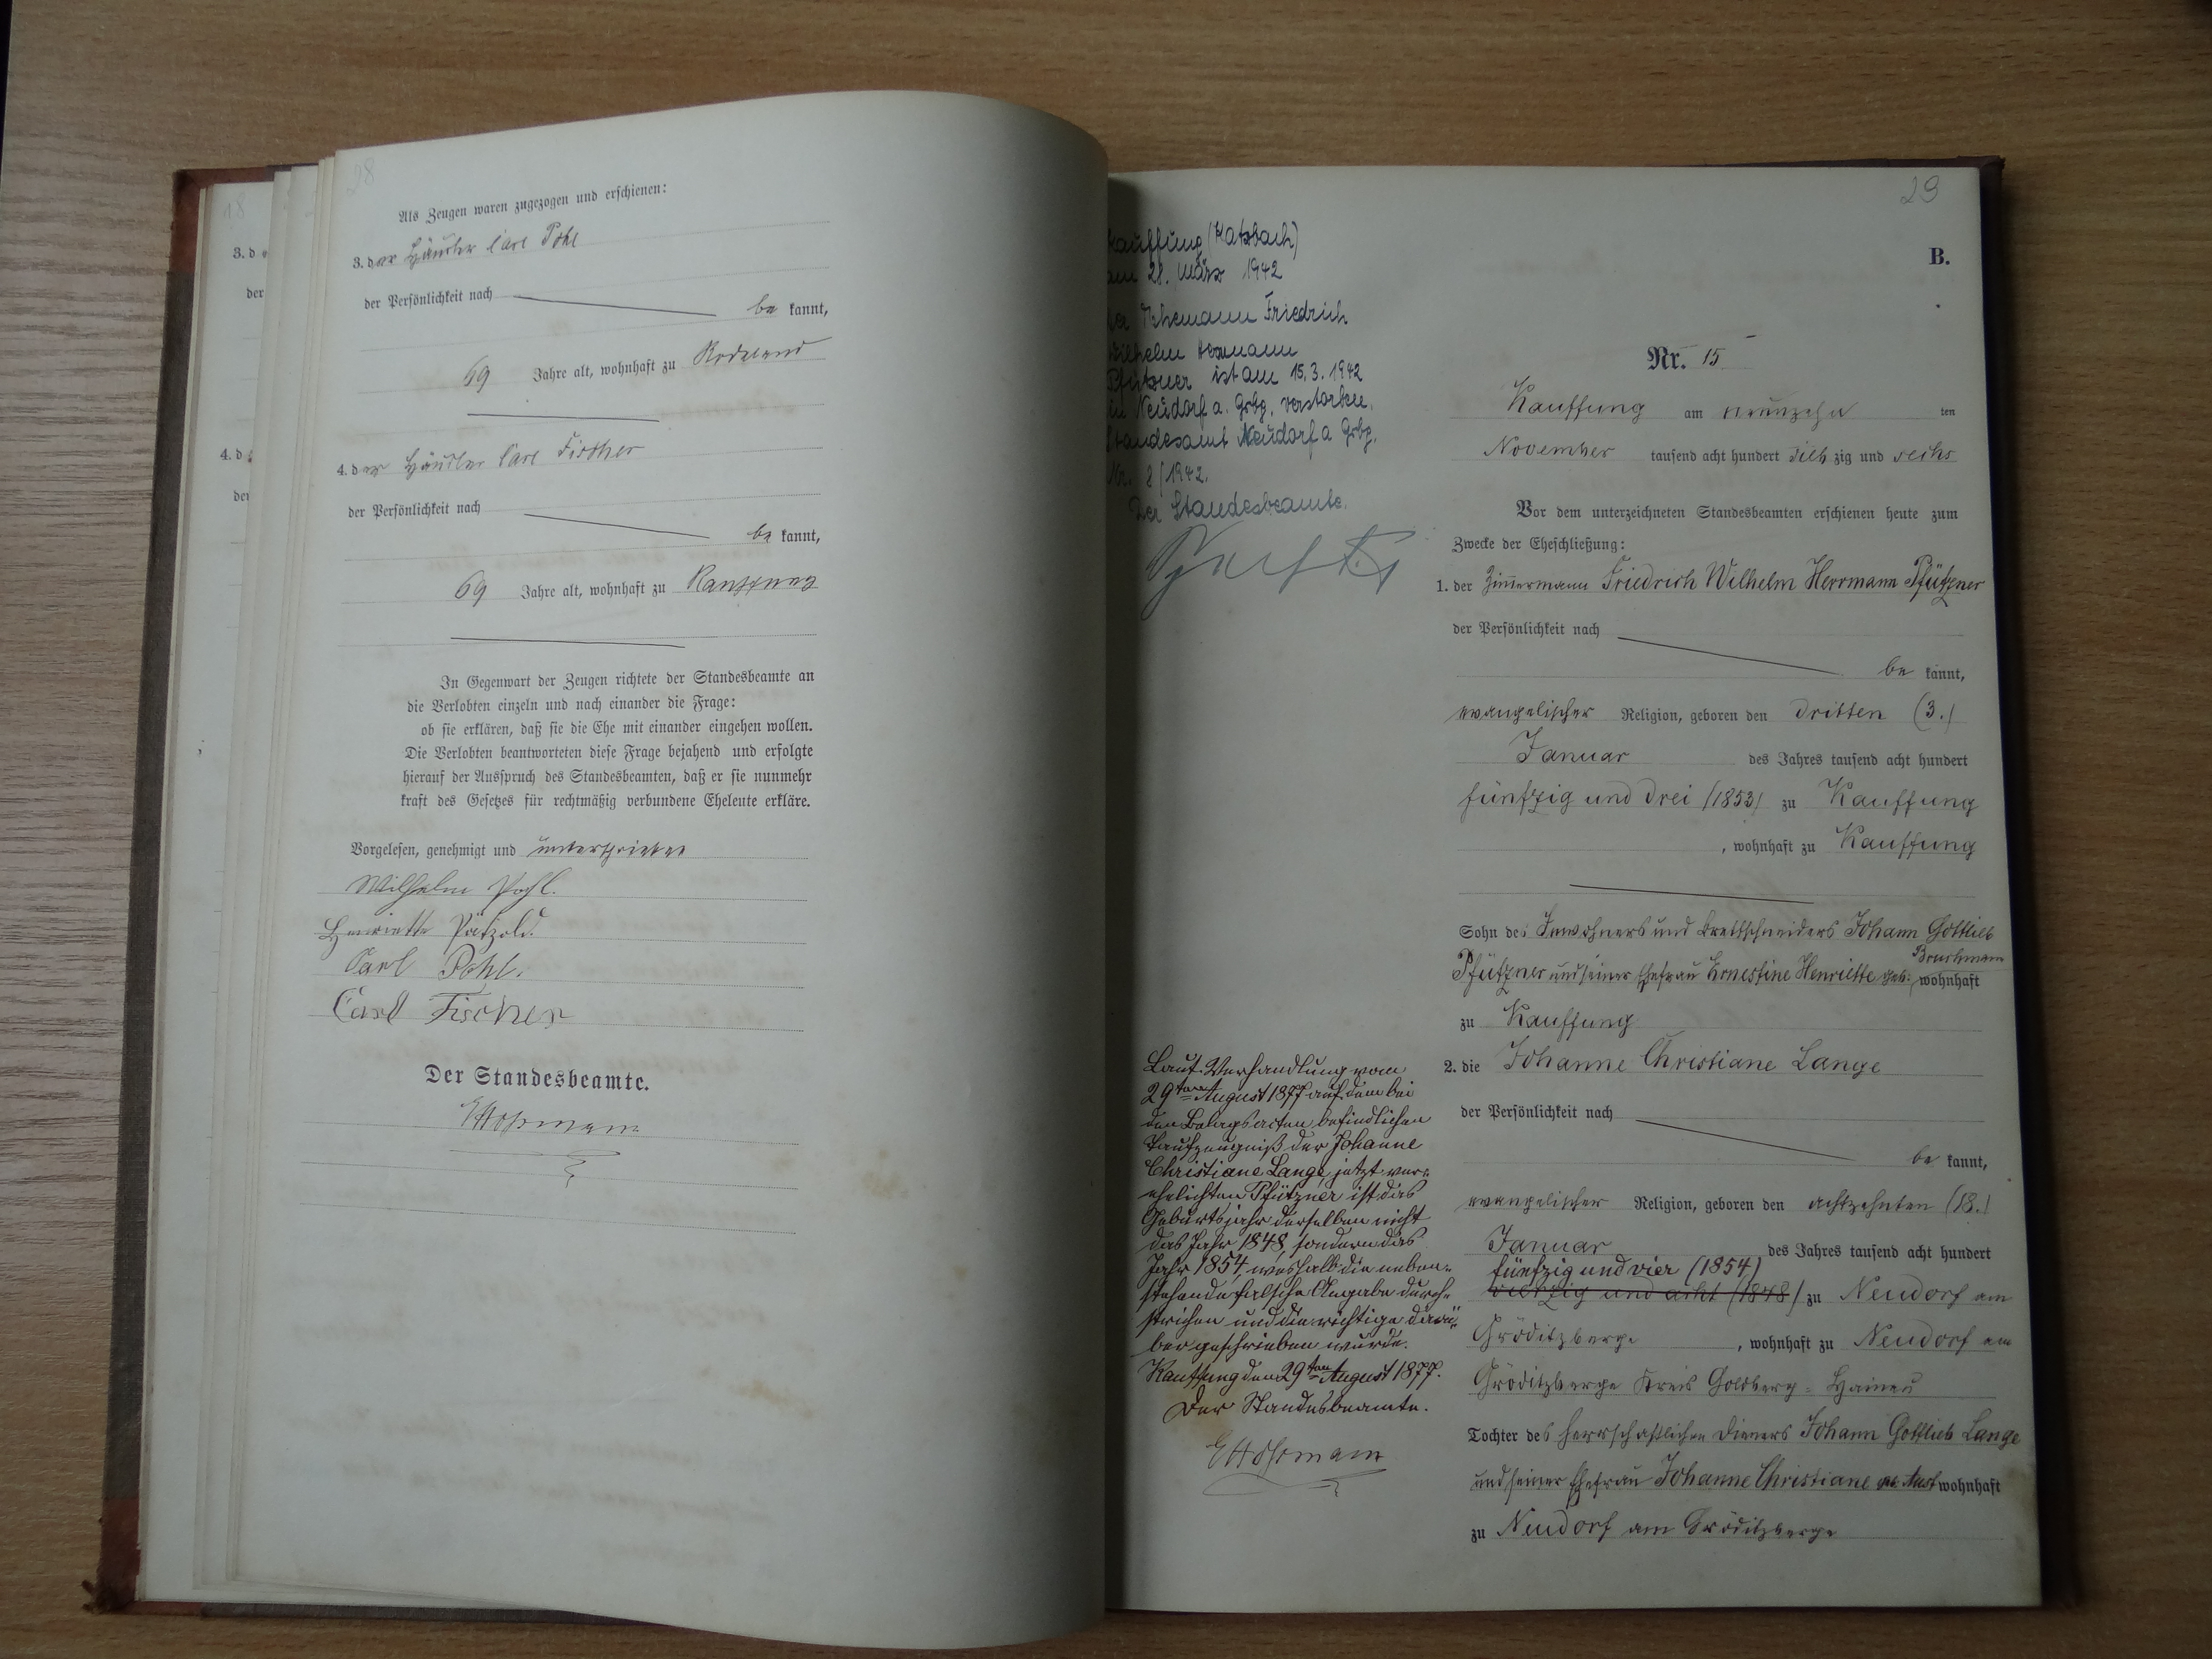 28
Als Zeugen waren zugezogen und erschienen:
3. der Häusler Carl Pohl
der Persönlichkeit nach
be kannt,
69 Jahre alt, wohnhaft zu
4. der Häusler Carl Fischer
der Persönlichkeit nach
be kannt,
69 Jahre alt, wohnhaft zu Kauffung
In Gegenwart der Zeugen richtete der Standesbeamte an
die Verlobten einzeln und nach einander die Frage:
ob sie erklären, daß sie die Ehe mit einander eingehen wollen.
Die Verlobten beantworteten diese Frage bejahend und erfolgte
hierauf der Ausspruch des Standesbeamten, daß er sie nunmehr
kraft des Gesetzes für rechtmäßig verbundene Eheleute erkläre.
Vorgelesen, genehmigt und unterschrieben
Wilhelm Pohl.
Henriette Pätzold.
Carl Pohl.
Carl Fischer
Der Standesbeamte.
18
3. d
der
4. d
der
29
B.
Kauffung (Katzbach)
am 28. März 1942
Der Ehemann Friedrich
Wilhelm Hermann
Pfützner ist am 15.3.1942
in Neudorf a. Grbg. verstorben.
Standesamt Neudorf a Grbg.
Nr. 8/1942.
Der Standesbeamte.
Nr. 15
Kauffung am neunzehn ten
November tausend acht hundert sieb zig und sechs
Vor dem unterzeichneten Standesbeamten erschienen heute zum
Zwecke der Eheschließung:
1. der Zim̄ermann Friedrich Wilhelm Herrmann Pfützner
der Persönlichkeit nach
be kannt,
evangelischer Religion, geboren den dritten (3.)
Januar des Jahres tausend acht hundert
fünfzig und drei (1853) zu Kauffung
, wohnhaft zu Kauffung
Sohn des Inwohners und Brettschneiders Johann Gottlieb
Pfützner und seiner Ehefrau Ernestine Henriette geb: Bruchmann wohnhaft
zu Kauffung
2. die Johanne Christiane Lange
der Persönlichkeit nach
be kannt,
evangelischer Religion, geboren den achtzehnten (18.)
Januar des Jahres tausend acht hundert
fünfzig und vier (1854)
vierzig und acht (1848) zu Neudorf am
Gröditzberge, wohnhaft zu Neudorf am
Gröditzberge Kreis Goldberg-Hainau
Tochter des herrschaftlichen Dieners Johann Gottlieb Lange
und seiner Ehefrau Johanne Christiane geb. Aust wohnhaft
zu Neudorf am Gröditzberge
Laut Verhandlung vom
29ten August 1877 auf dem bei
den Belagsacten befindlichen
Taufzeugniß der Johanne
Christiane Lange, jetzt ver-
ehelichten Pfützner ist das
Geburtsjahr derselben nicht
das Jahr 1848, sondern das
Jahr 1854, weshalb die neben-
stehende falsche Angabe durch-
strichen und die richtige darü-
ber geschrieben wurde.
Kauffung den 29ten August 1877.
Der Standesbeamte.